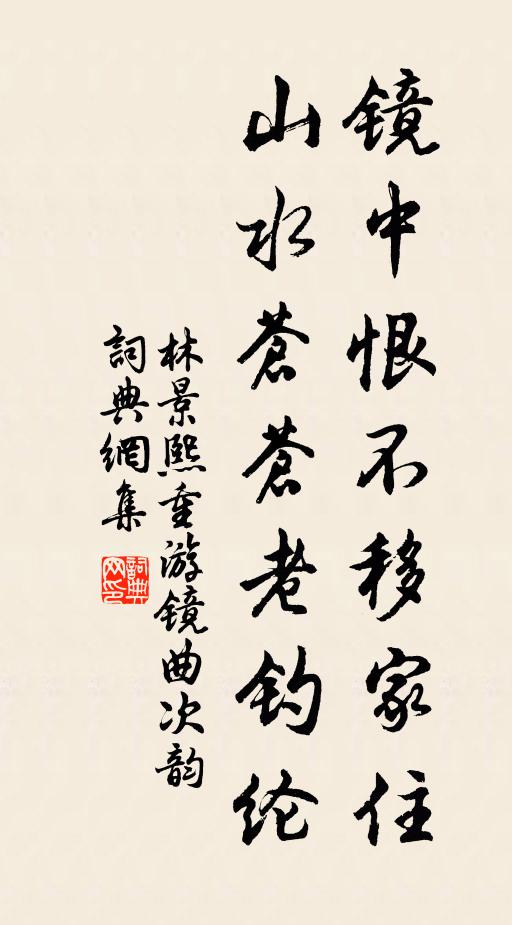 镜中恨不移家住
山水苍苍老钓纶
林景熙重游镜曲次韵
詞典網集
詞典网印